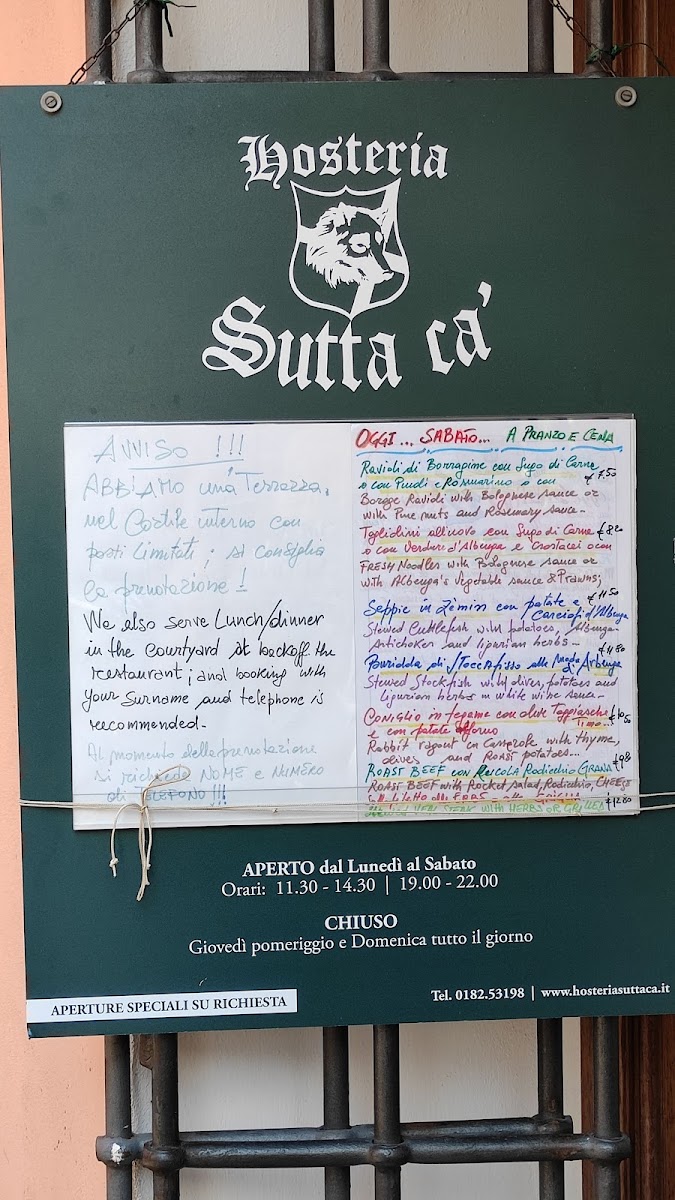 Hosteria
Sutta ca'
AVVISO !!!
ABBIAMO una' Terrazza,
nel Cortile interno con
posti Limitati; si consiglia
la prenotazione!
We also serve Lunch/dinner
in the courtyard at backoff the
restaurant; and booking with
your surname and telephone is
recommended-
Al momento della prenotazione
si richiede NOME e NUMERO
di TELEFONO!!!
OGGI... SABATO... A PRANZO E CENA
Ravioli di Borragine con Sugo di Carne
o con Pinoli e Rosmarino o con € 7.50
Borage Ravioli with Bolognese sauce or
with Pine nuts and Rosemary sauce-
Tagliolini all'uovo con Sugo di Carne € 8.20
o con Verdure d'Albenga e Crostacei o con
FRESH Noodles with Bolognese sauce or
with Albenga's Vegetable sauce & Prawns;
Seppie in Zemin con patate e € 11.50
Carciofi d'Albenga
Stewed Cuttlefish with potatoes, Albenga-
Artichoker and ligurian herbs-
Buridda di Stoccafisso alla
Stewed Stockfish with olives, potatoes and
Ligurian herbs in white wine sauce-
Coniglio in tegame con olive Taggiasche € 10.50
Timo...
e con patate al forno
Rabbit ragout in casserole with thyme,
olives and roast potatoes...
ROAST BEEF con Rucola Radicchio GRANA
ROAST BEEF with Rocket salad, Radicchio, CHEESE
STEAK WITH HERBS OR GRILLED € 12.80
APERTO dal Lunedì al Sabato
Orari: 11.30 - 14.30 | 19.00 - 22.00
CHIUSO
Giovedì pomeriggio e Domenica tutto il giorno
APERTURE SPECIALI SU RICHIESTA
Tel. 0182.53198 | www.hosteriasuttaca.it